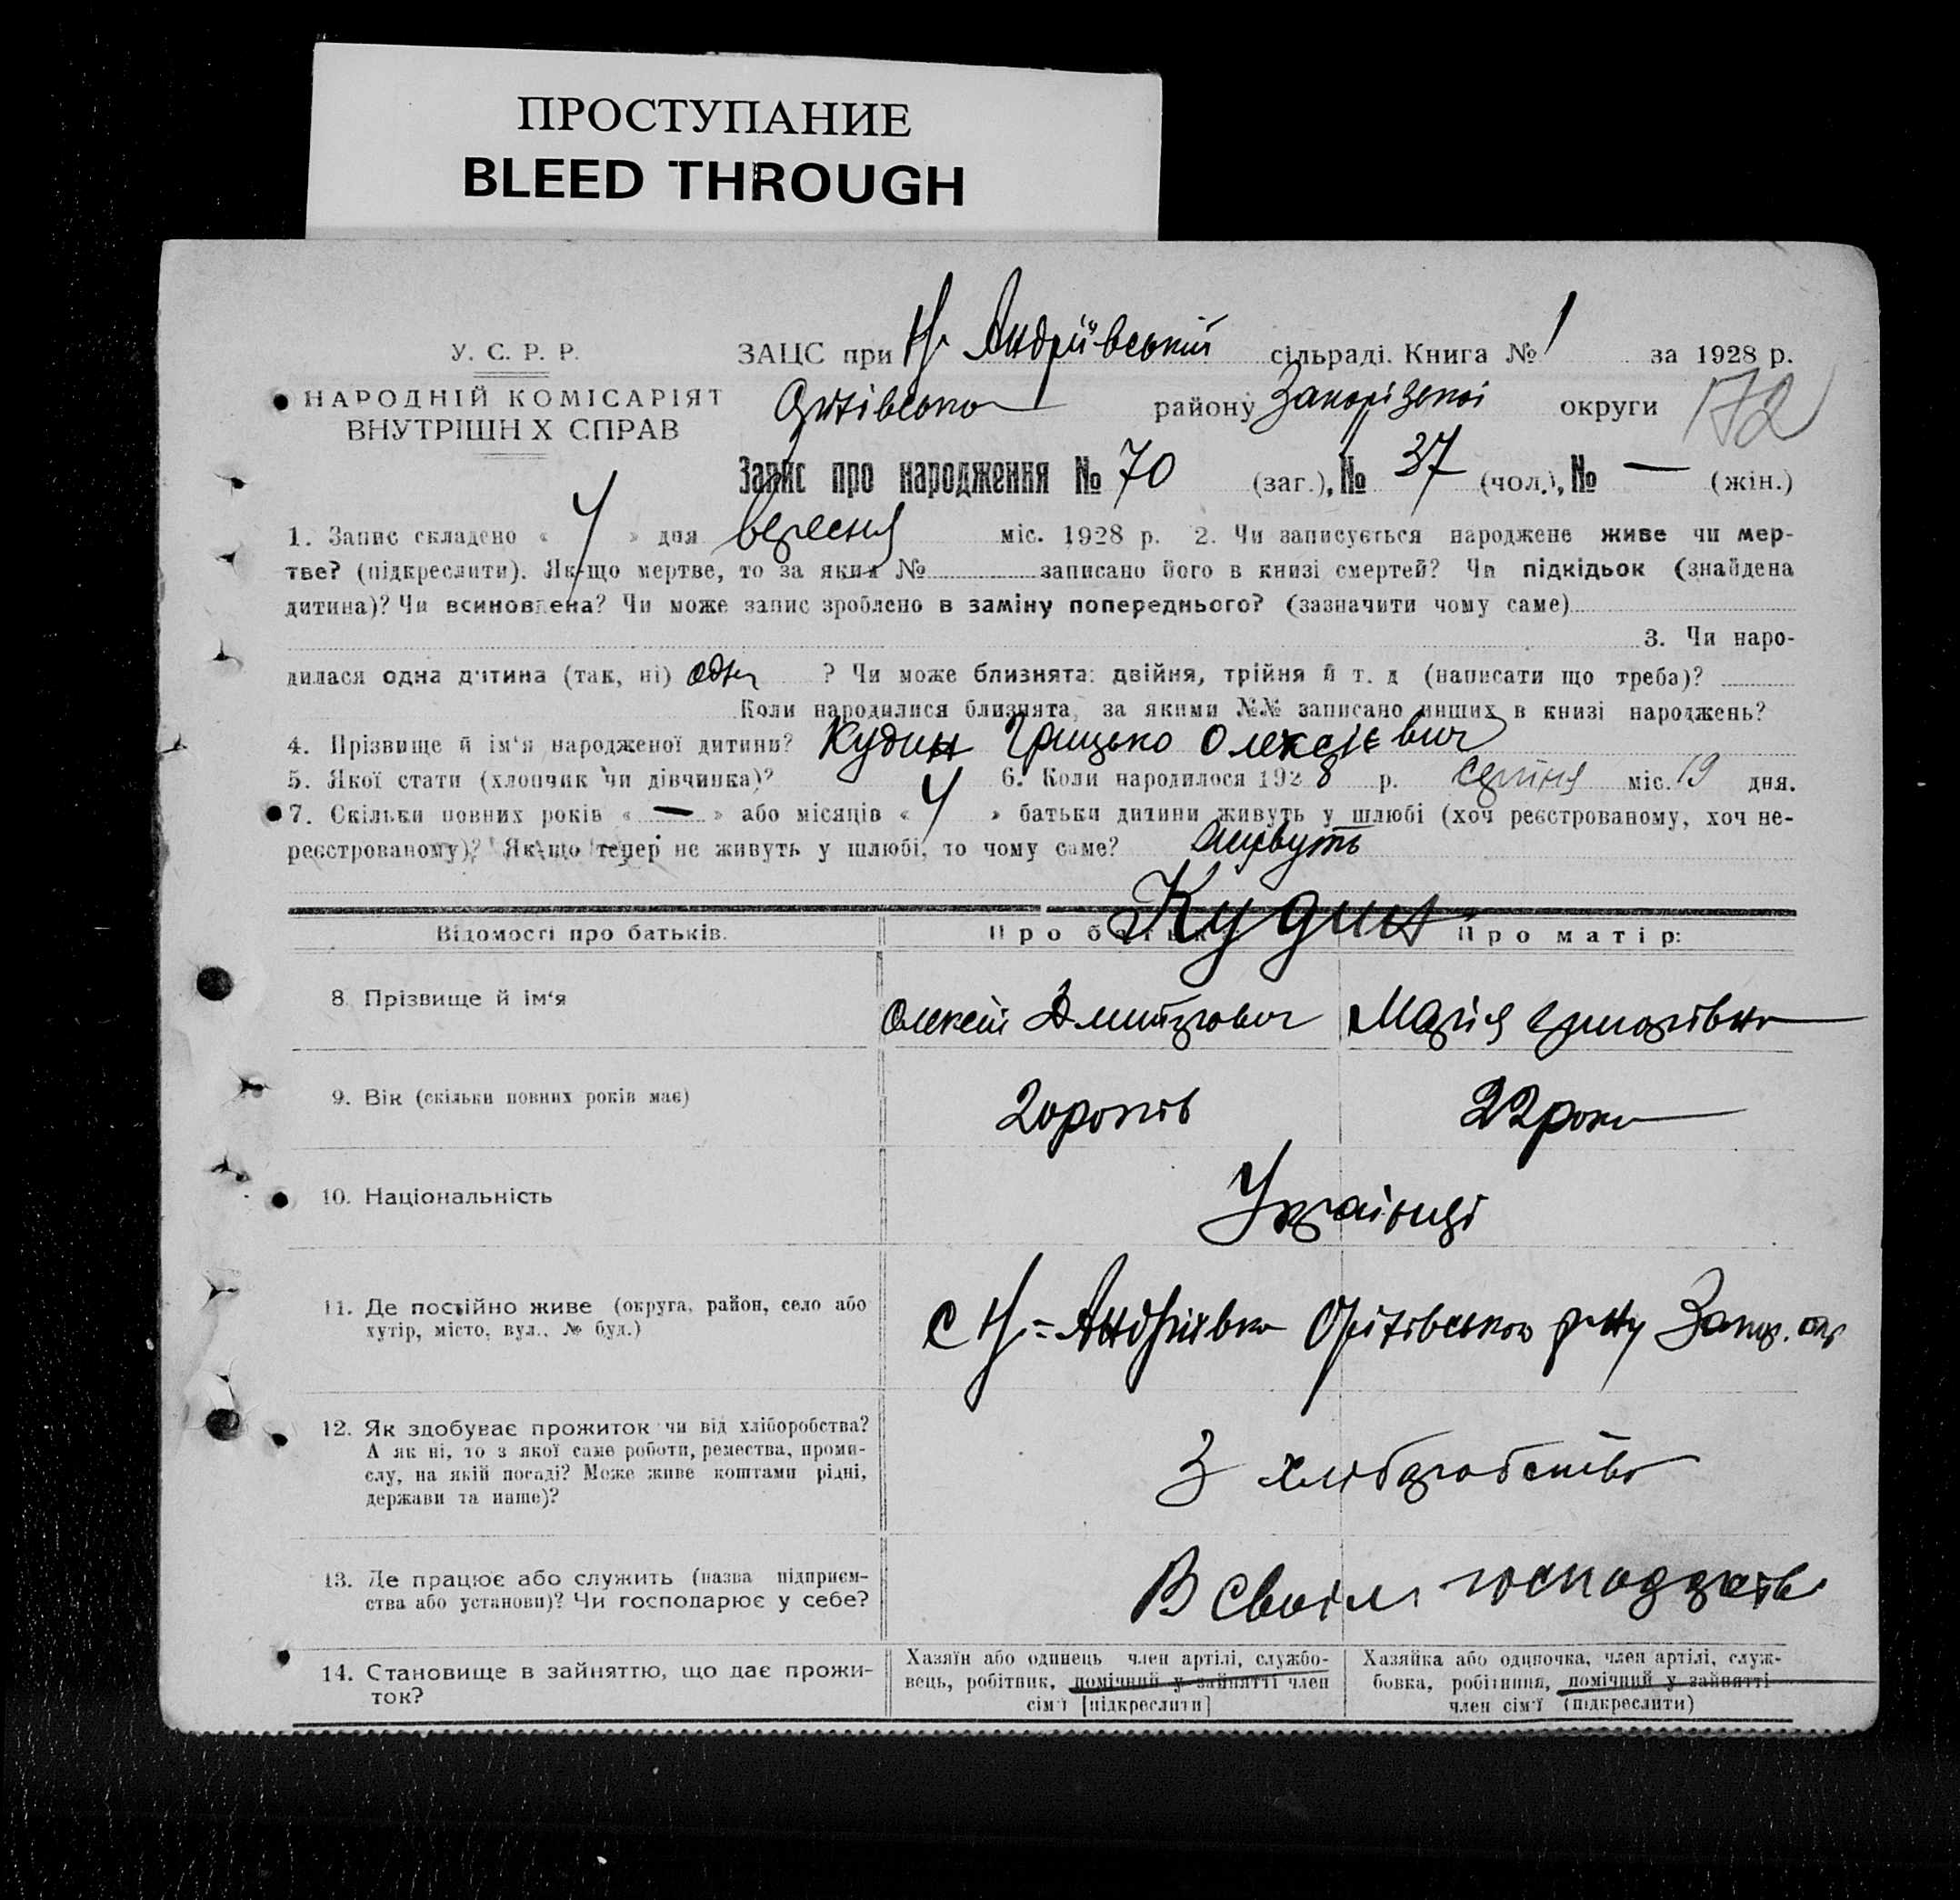 ПРОСТУПАНИЕ
BLEED THROUGH
У. С. Р. Р.
НАРОДНІЙ КОМІСАРІЯТ
ВНУТРІШН Х СПРАВ
ЗАЦС при Н. Андріївській сільраді. Книга № 1 за 1928 р.
району Запорізької округи 172
Запис про народження № 70 (заг.), № 37 (чол.), № — (жін.)
1. Запис складено « 4 » дня вересня міс. 1928 р. 2. Чи записується народжене живе чи мер-
тве? (підкреслити). Як-що мертве, то за яким № записано його в книзі смертей? Чи підкідьок (знайдена
дитина)? Чи всиновлена? Чи може запис зроблено в заміну попереднього? (зазначити чому саме)
3. Чи наро-
дилася одна дитина (так, ні) одна ? Чи може близнята: двійня, трійня й т. д (написати що треба)?
Коли народилися близнята, за якими №№ записано инших в книзі народжень?
4. Прізвище й ім‘я народженої дитини? Кудин Грицько Олексієвич
5. Якої стати (хлопчик чи дівчинка)? Ч 6. Коли народилося 1928 р. серпня міс. 19 дня.
7. Скільки повних років « — » або місяців « 4 » батьки дитини живуть у шлюбі (хоч реєстрованому, хоч не-
реєстрованому)? Як-що тепер не живуть у шлюбі, то чому саме? живуть
Відомості про батьків. Про батька Про матір:
Кудин
8. Прізвище й ім‘я Олексій Дмитрович Марія Григорівна
9. Вік (скільки повних років має) 20 років 22 роки
10. Національність Українці
11. Де постійно живе (округа, район, село або
хутір, місто, вул., № буд.) с Н-Андріївка Оріхівського р-ну Запор. окр
12. Як здобуває прожиток чи від хліборобства?
А як ні, то з якої саме роботи, ремества, проми-
слу, на якій посаді? Може живе коштами рідні,
держави та инше)? З хліборобства
13. Де працює або служить (назва підприєм-
ства або установи)? Чи господарює у себе? В своїм господарстві
14. Становище в зайняттю, що дає прожи-
ток?
Хазяїн або одинець член артілі, службо-
вець, робітник, помічний у зайнятті член
сім‘ї [підкреслити]
Хазяйка або одиночка, член артілі, служ-
бовка, робітниця, помічний у зайнятті
член сім‘ї (підкреслити)